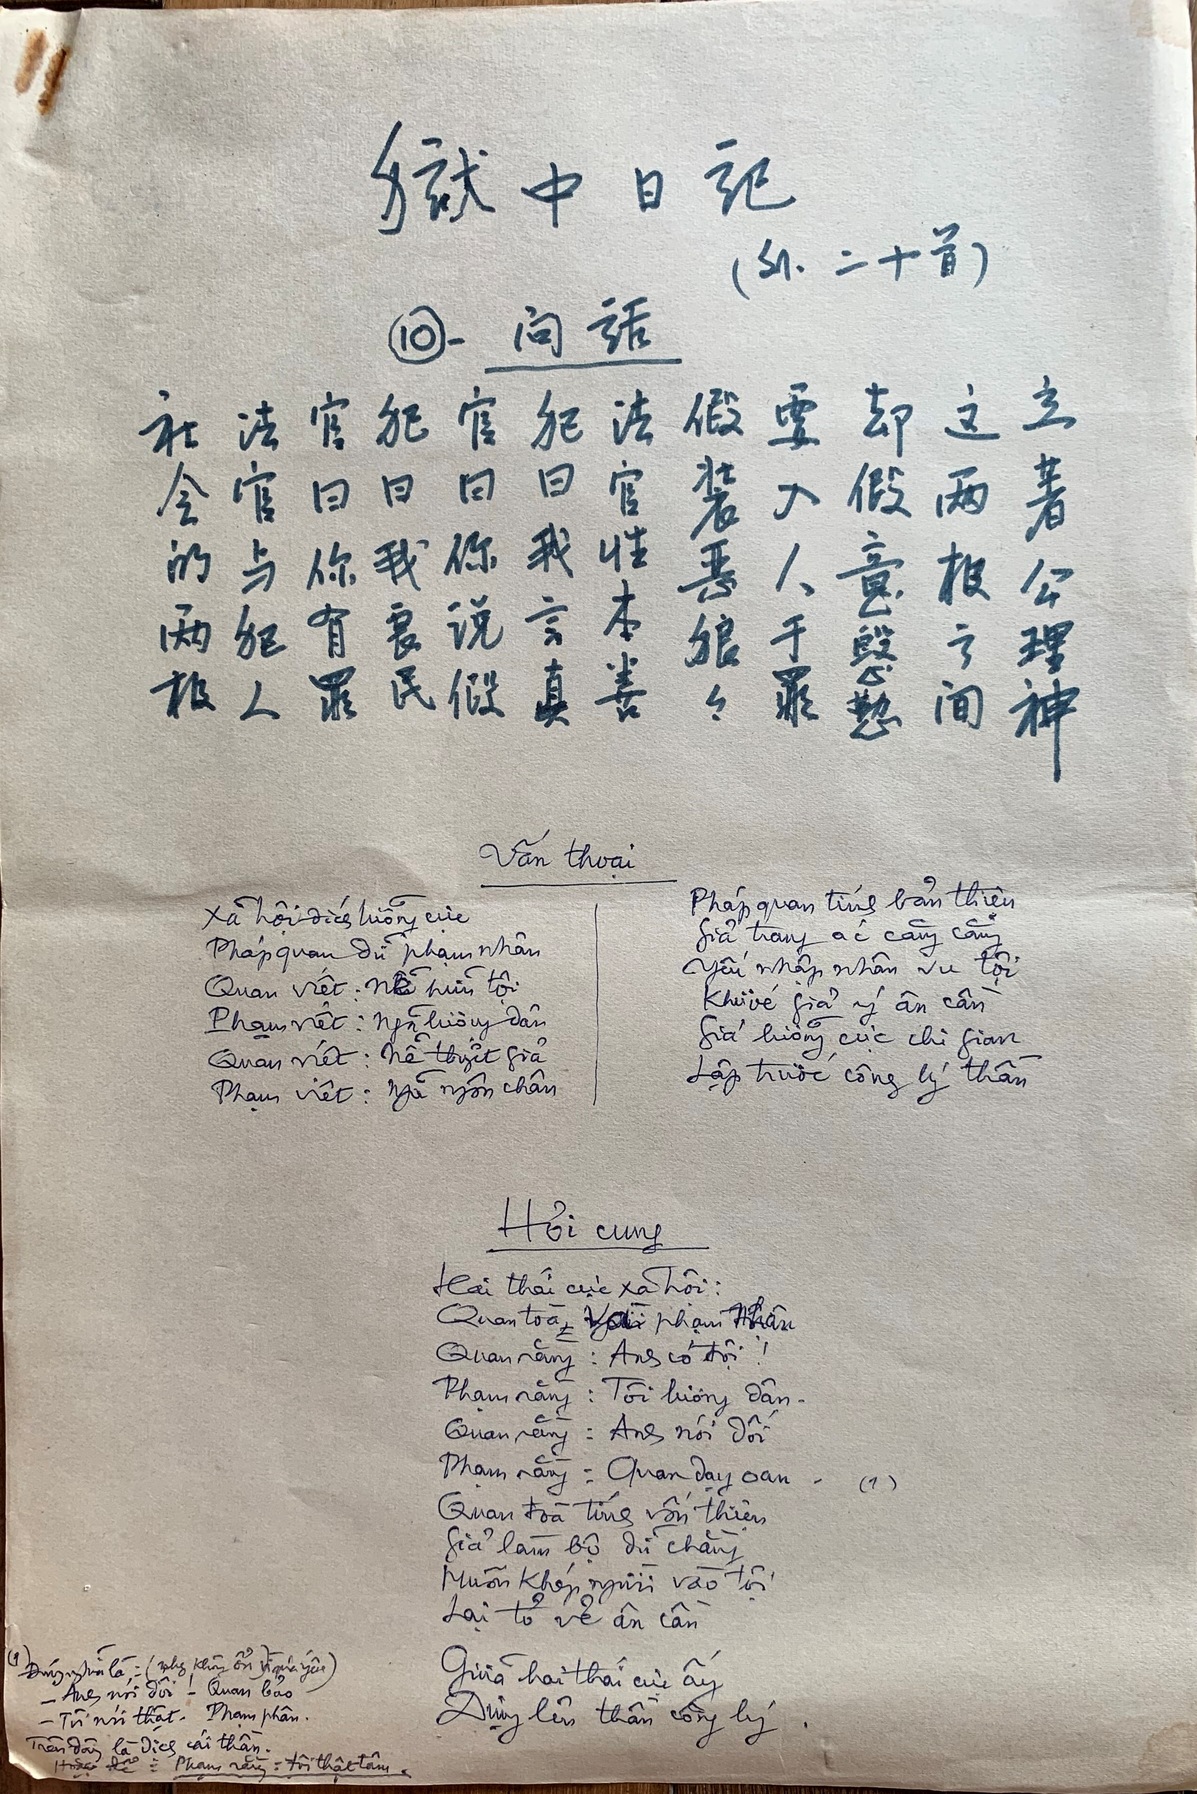 獄中日記
(外. 二十首)
⑩- 问話
社会的两极
法官与犯人
官曰你有罪
犯曰我良民
官曰你说假
犯曰我言真
法官性本善
假装恶狼々
要入人于罪
却假意慇懃
这两极之间
立著公理神
Vấn thoại
Xã hội đích lưỡng cực
Pháp quan dữ phạm nhân
Quan viết: Nễ hữu tội
Phạm viết: Ngã lương dân
Quan viết: Nễ thuyết giả
Phạm viết: Ngã ngôn chân
Pháp quan tính bản thiện
Giả trang ác
Yếu nhập nhân vu tội
Khước giả ý ân cần
Giá lưỡng cực chi gian
Lập trước công lý thần
Hỏi cung
Hai thái cực xã hội:
Quan toà, với phạm nhân
Quan rằng: Anh có tội!
Phạm rằng: Tôi lương dân.
Quan rằng: Anh nói dối
Phạm rằng: Quan dạy oan. (1)
Quan toà tính vốn thiện
Giả làm bộ dữ chằng
Muốn khép người vào tội
Lại tỏ vẻ ân cần
Giữa hai thái cực ấy
Đứng lên thần công lý.
(1) Đúng nghĩa là: (nhưng không ổn)
- Anh nói dối! - Quan bảo
- Tôi nói thật. Phạm phân.
Trên đây là dịch cái thần.
Phạm rằng: tôi thật tâm.